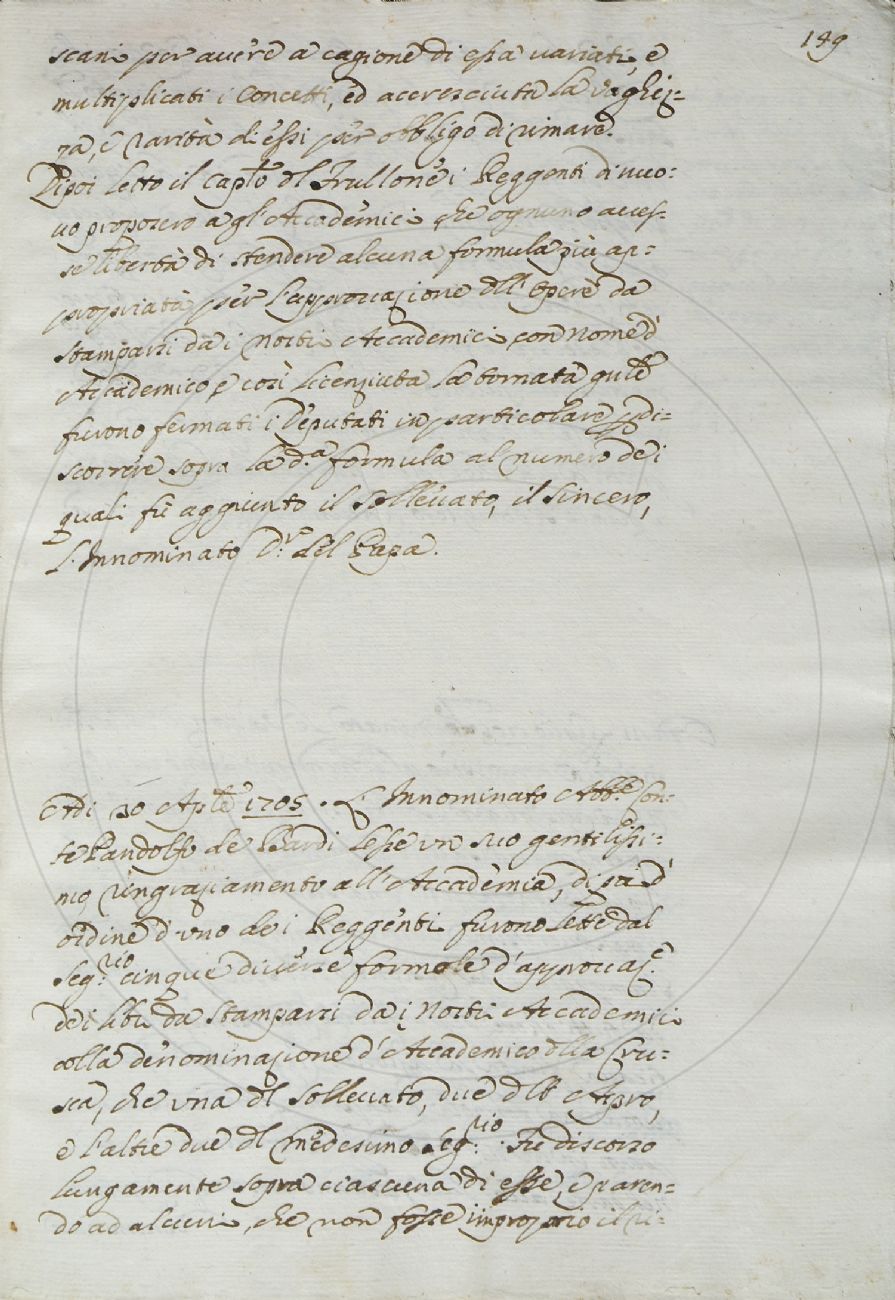 189
scani per avere a cagione di essa variati, e
multiplicati i Concetti, ed accresciuta la vaghez=
za, e rarità di essi per obbligo di rimare.
Dipoi letto il Capto. dl Frullone i Reggenti di nuo=
vo proposero agl'Accademici che ognuno aves=
se libertà di stendere alcuna formula più ap=
propriata per l'approvazione dll'opere da
stamparsi da i nostri Accademici con nome d'
Accademico e così licenziata la tornata
furono fermati i Deputati in particolare di=
scorrere sopra la d.a formula al numero de i
quali fù aggiunto il Sollevato, il Sincero,
L'Innominato D.r del Papa.
Adi 30 Aple 1705. L'Innominato Abb.e Con=
te Pandolfo de Bardi lesse un suo gentilissi=
mo ringraziamento all'Accademia, di poi d'
ordine d'uno de i Reggenti furono lette dal
Seg.rio cinque diverse formole d'approvaz.e
de i libri da stamparsi da i nostri Accademici
colla denominazione d'Accademico dlla Cru=
sca, che una dl Sollevato, due dll' Apro,
e l'altre due dl medesimo Seg.rio. Fu discorso
lungamente sopra ciascuna di esse, e paren=
do ad alcuni, che non fosse improprio il ri=